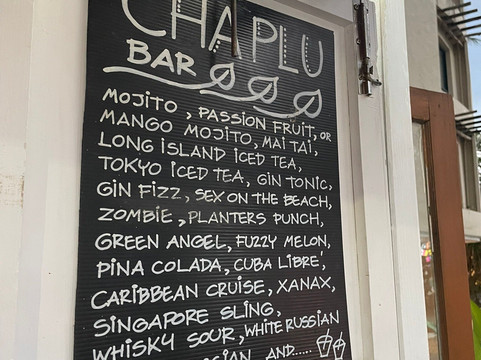 CHAPLU
BAR
MOJITO, PASSION FRUIT, OR
MANGO MOJITO, MAI TAI,
LONG ISLAND ICED TEA,
TOKYO ICED TEA, GIN TONIC,
GIN FIZZ, SEX ON THE BEACH,
ZOMBIE, PLANTERS PUNCH,
GREEN ANGEL, FUZZY MELON,
PINA COLADA, CUBA LIBRE',
CARIBBEAN CRUISE, XANAX,
SINGAPORE SLING,
WHISKY SOUR, WHITE RUSSIAN
AND.....